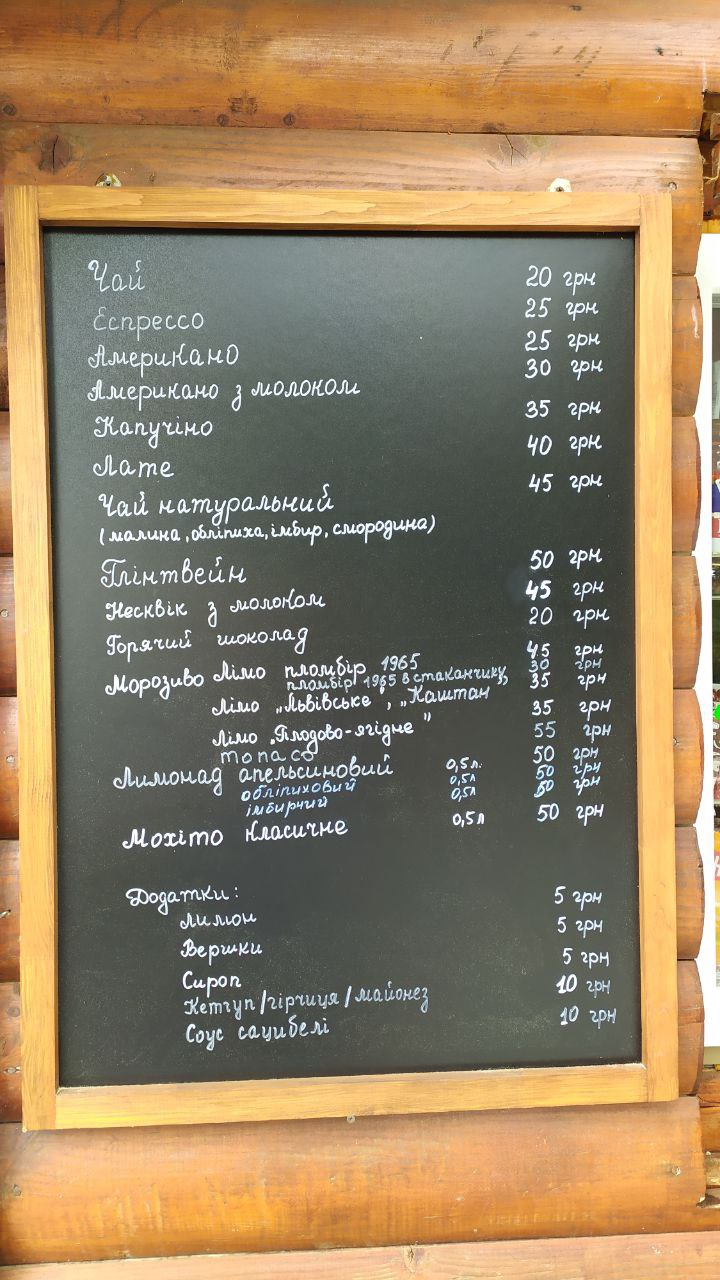 Чай 20 грн
Еспрессо 25 грн
Американо 25 грн
Американо з молоком 30 грн
Капучіно 35 грн
Лате 40 грн
Чай натуральний 45 грн
(малина, обліпиха, імбир, смородина)
Глінтвейн 50 грн
Несквік з молоком 45 грн
Горячий шоколад 20 грн
Морозиво Лімо пломбір 1965 45 грн
пломбір 1965 в стаканчику 30 грн
Лімо „Львівське", „Каштан" 35 грн
Лімо „Плодово-ягідне" 35 грн
топасо 55 грн
Лимонад апельсиновий 0,5 л. 50 грн
обліпиховий 0,5л 50 грн
імбирчий 0,5л 50 грн
Мохіто класичне 0,5 л 50 грн
Додатки:
Лимон 5 грн
Вершки 5 грн
Сироп 5 грн
Кетчуп/гірчиця/майонез 10 грн
Соус сацибелі 10 грн